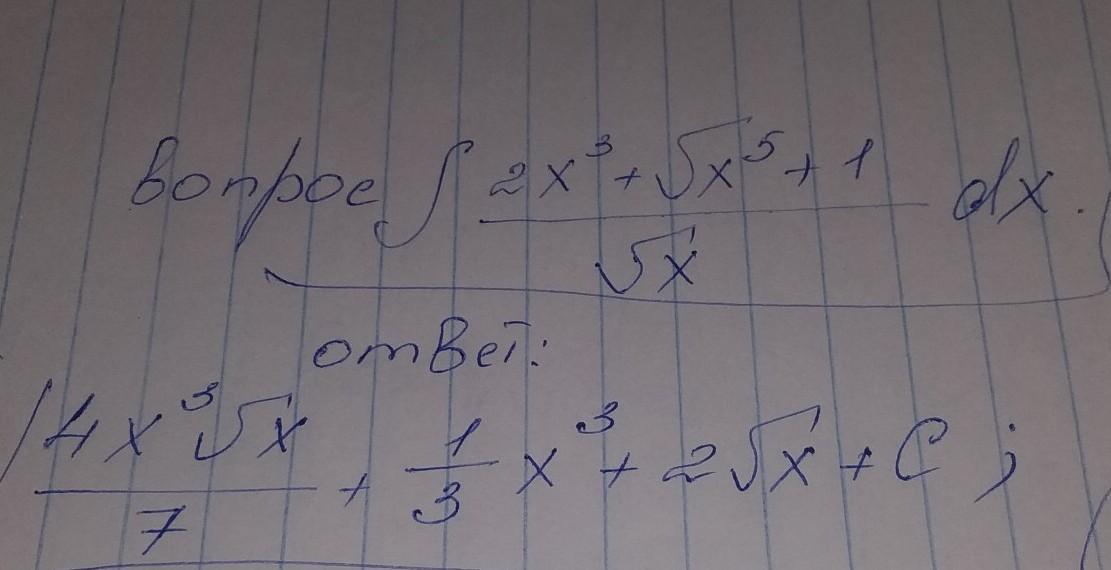 вопрос ∫ (2x³ + √x⁵ + 1)/√x dx.
ответ:
4x³√x/7 + 1/3 x³ + 2√x + C ;